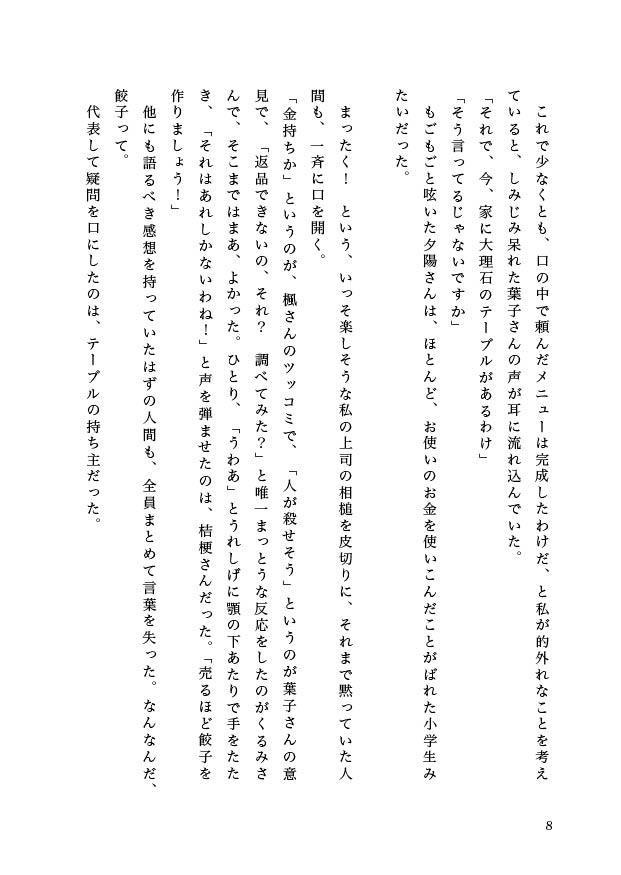 これで少なくとも、口の中で頼んだメニューは完成したわけだ、と私が的外れなことを考え
ていると、しみじみ呆れた葉子さんの声が耳に流れ込んでいた。
「それで、今、家に大理石のテーブルがあるわけ」
「そう言ってるじゃないですか」
　もごもごと呟いた夕陽さんは、ほとんど、お使いのお金を使いこんだことがばれた小学生み
たいだった。
　まったく！　という、いっそ楽しそうな私の上司の相槌を皮切りに、それまで黙っていた人
間も、一斉に口を開く。
「金持ちか」というのが、楓さんのツッコミで、「人が殺せそう」というのが葉子さんの意
見で、「返品できないの、それ？　調べてみた？」と唯一まっとうな反応をしたのがくるみさ
んで、そこまではまあ、よかった。ひとり、「うわあ」とうれしげに顎の下あたりで手をたた
き、「それはあれしかないわね！」と声を弾ませたのは、桔梗さんだった。「売るほど餃子を
作りましょう！」
　他にも語るべき感想を持っていたはずの人間も、全員まとめて言葉を失った。なんなんだ、
餃子って。
　代表して疑問を口にしたのは、テーブルの持ち主だった。
8